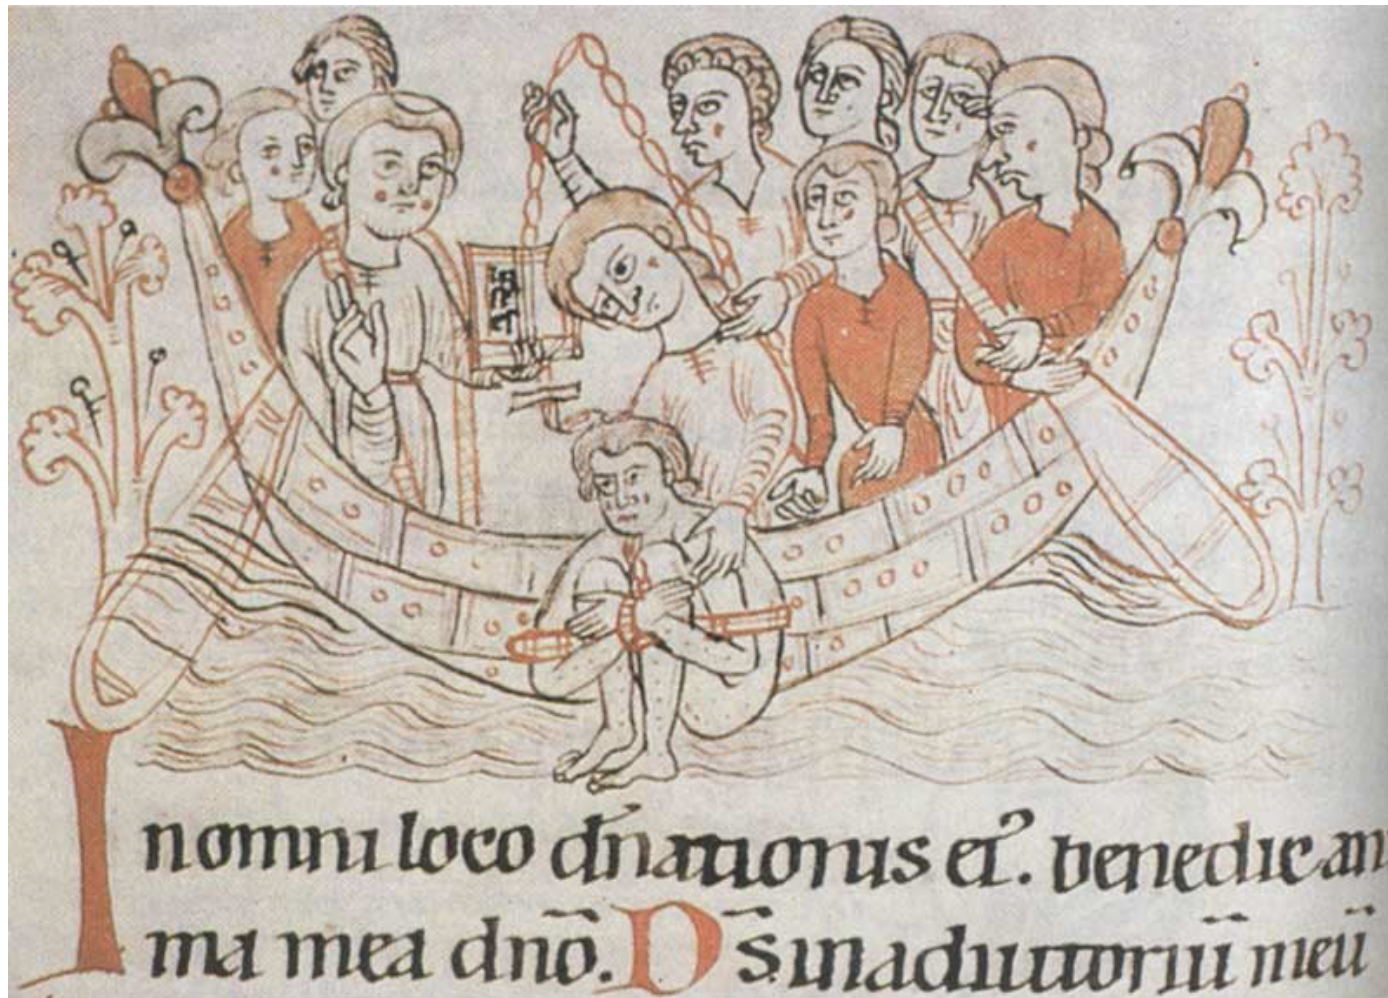 In omni loco dn̄ationis eiꝰ. benedic ani
ma mea dnō. Ds̄ in adiutoriū meū